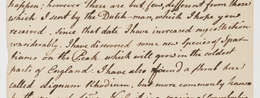 happen; however there are but few, different from those
which I sent by the Dutch-man, which I hope you
received. Since that date I have increased my collection
considerably. I have discovered some new Species of
on the Peak which will grow in the coldest
parts of England. I have also found a floral tree
called Lignum Rhodium, but more commonly known